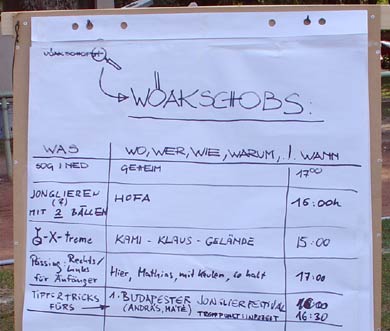 WÖAKSCHOPS
WÖAKSCHOBS:
WAS WO, WER, WIE, WARUM, ... WANN
SOG I NED GEHEIM 17⁰⁰
JONGLIEREN
(?)
MIT 2 BÄLLEN HOFA 16:00h
X-treme KAMI-KLAUS-GELÄNDE 15:00
Passing Rechts/
Links
für Anfänger Hier, Mathias, mit Keulen, so halt 17:00
TIPPS & TRICKS
FÜRS 1. BUDAPESTER JONGLIERFESTIVAL
(ANDRÁS, MÁTÉ) TREFFPUNKT 16:30